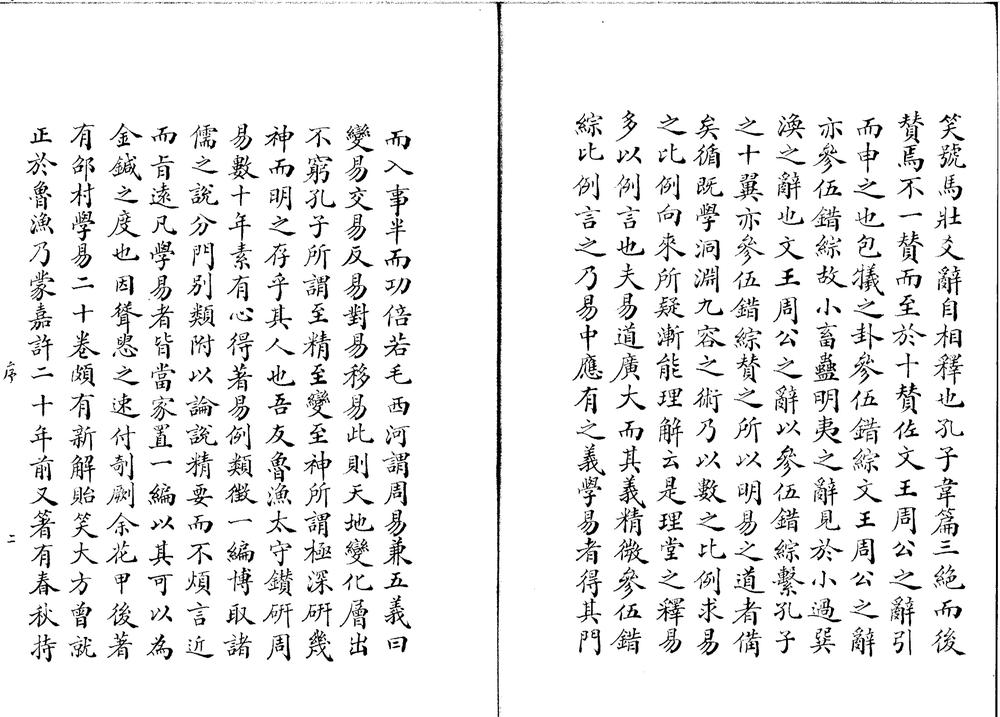 笑號馬壯爻辭自相釋也孔子韋篇三絕而後
贊焉不一贊而至於十贊佐文王周公之辭引
而申之也包犧之卦參伍錯綜文王周公之辭
亦參伍錯綜故小畜蠱明夷之辭見於小過巽
渙之辭也文王周公之辭以參伍錯綜繫孔子
之十翼亦參伍錯綜贊之所以明易之道者備
矣循既學洞淵九容之術乃以數之比例求易
之比例向來所疑漸能理解云是理堂之釋易
多以例言也夫易道廣大而其義精微參伍錯
綜比例言之乃易中應有之義學易者得其門
而入事半而功倍若毛西河謂周易兼五義曰
變易交易反易對易移易此則天地變化層出
不窮孔子所謂至精至變至神所謂極深研幾
神而明之存乎其人也吾友魯漁太守鑚研周
易數十年素有心得著易例類徵一編博取諸
儒之說分門別類附以論說精要而不煩言近
而旨遠凡學易者皆當家置一編以其可以為
金鍼之度也因聳恿之速付剞劂余花甲後著
有邵村學易二十卷頗有新解貽笑大方曾就
正於魯漁乃蒙嘉許二十年前又著有春秋持
序
二